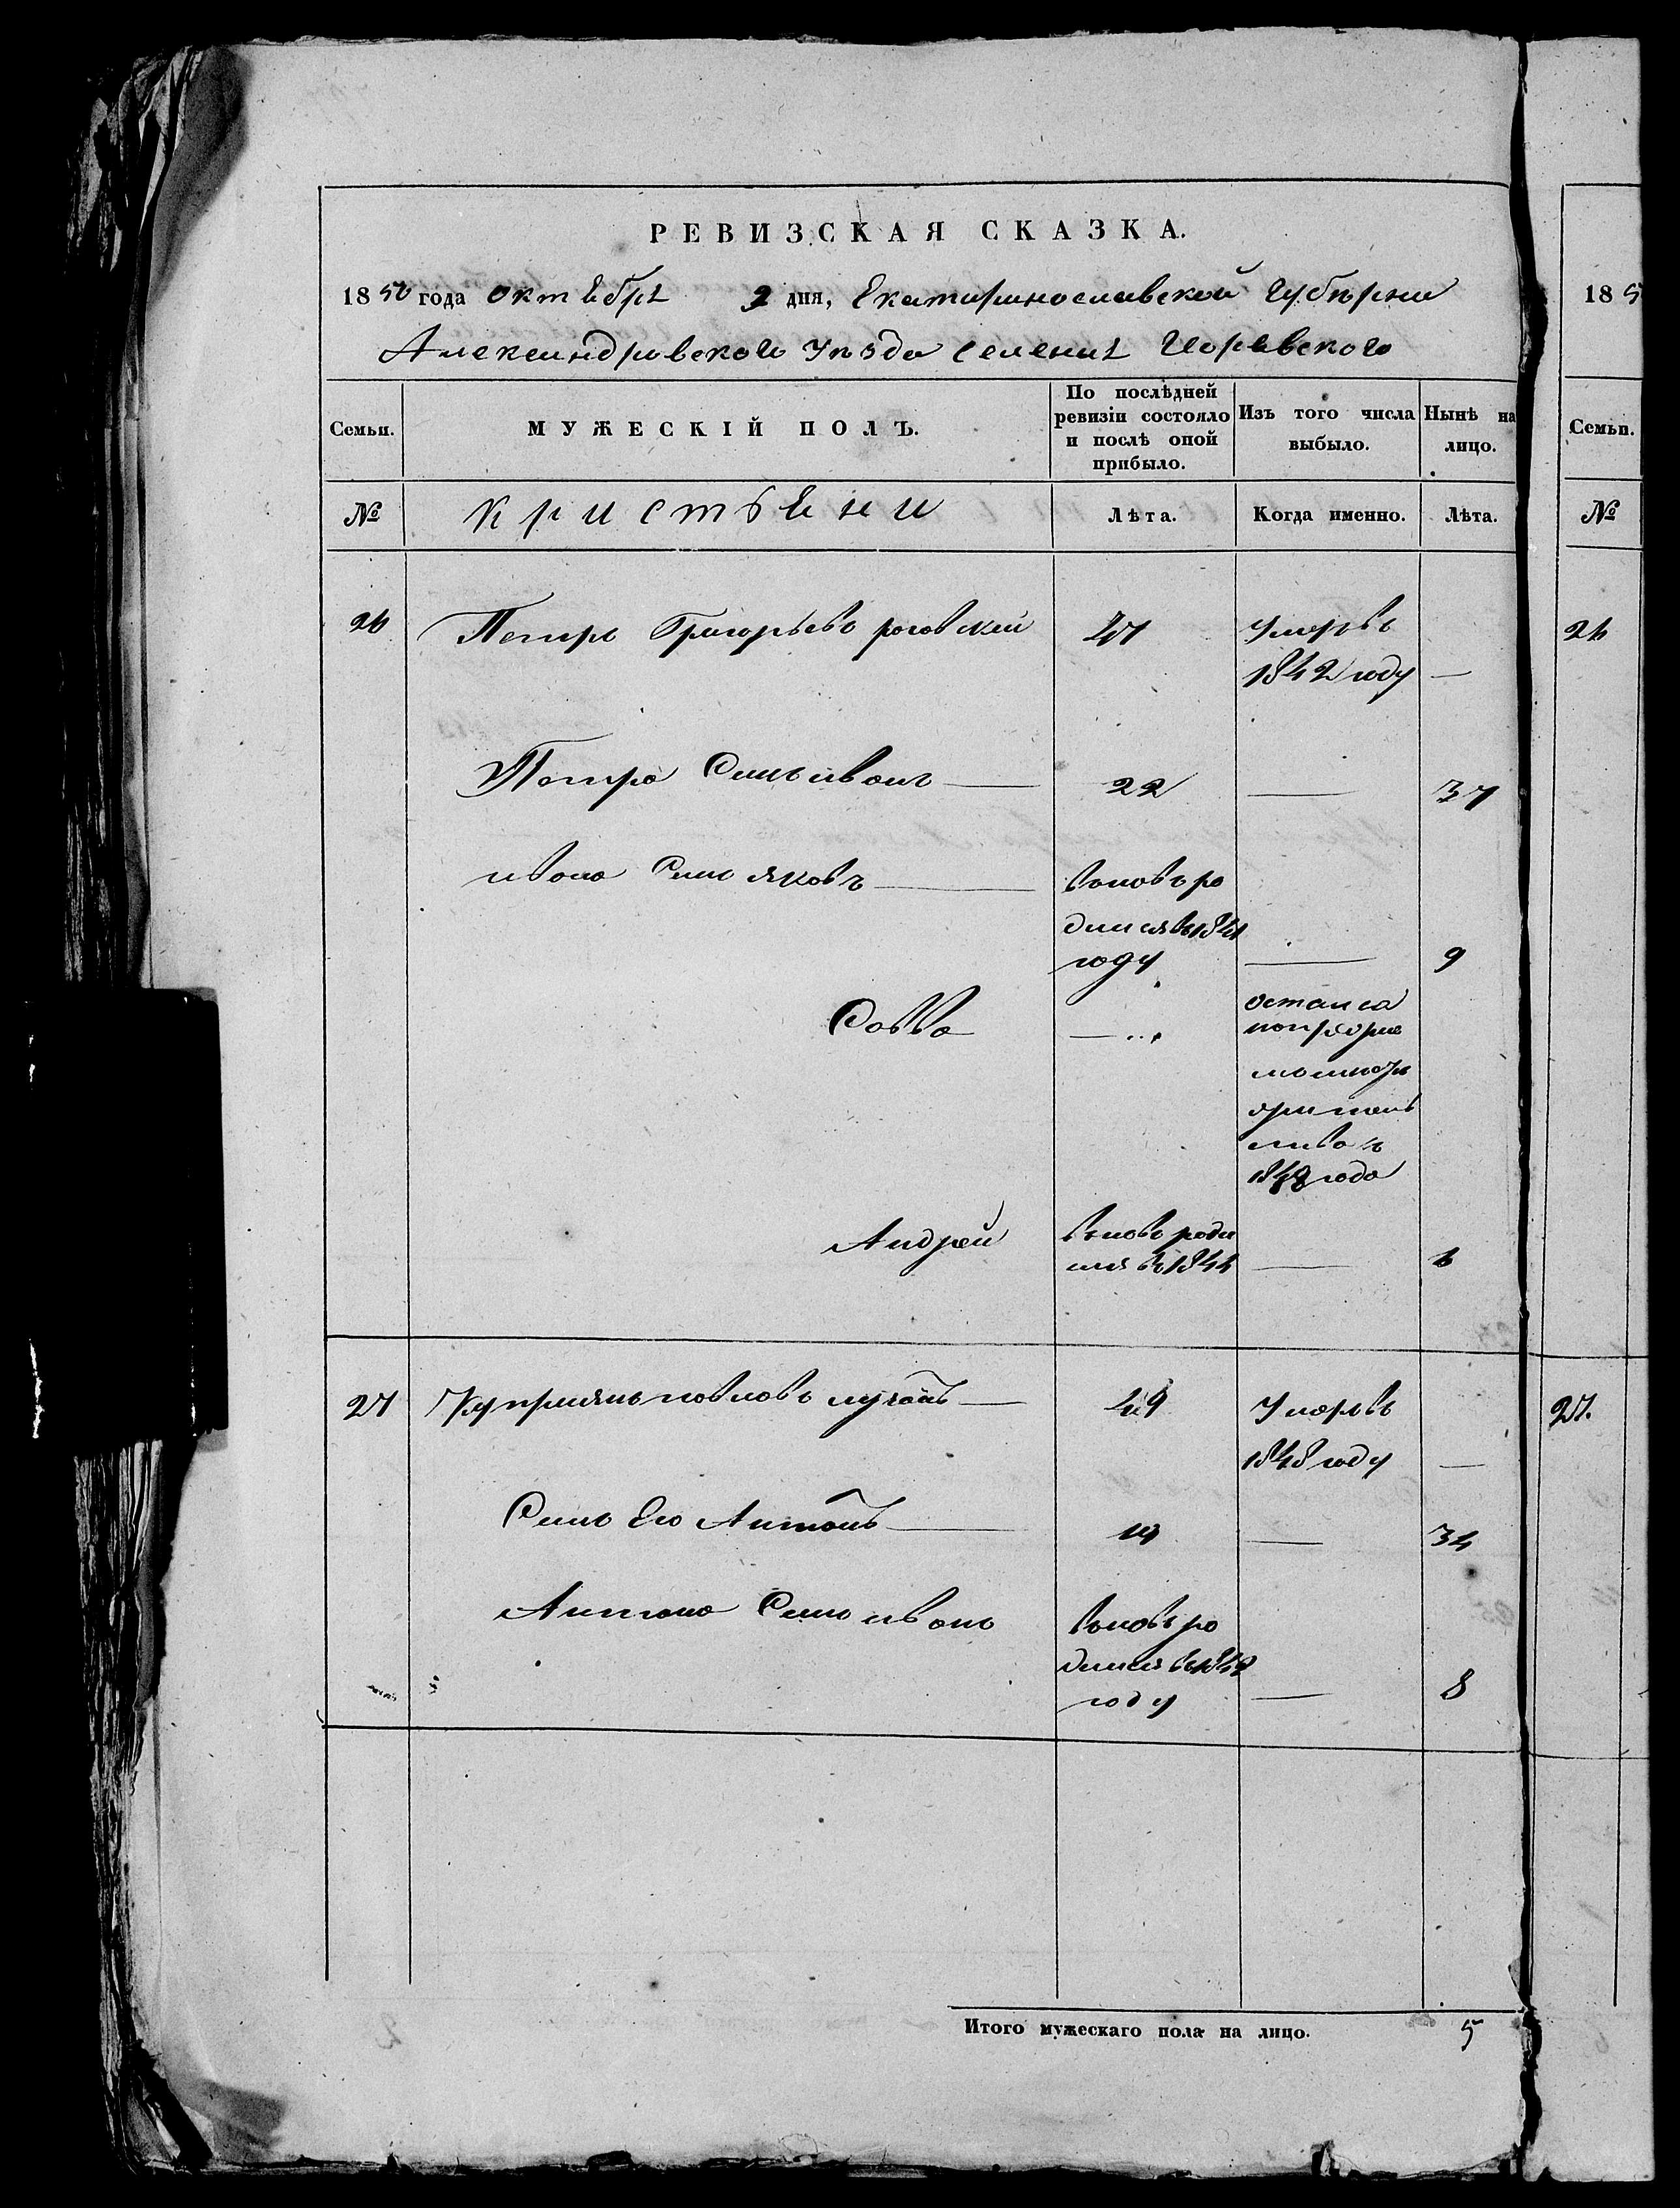 РЕВИЗСКАЯ СКАЗКА.
1850 года октебря 9 дня, Екатиринославской Губѣрни
Александровского Уѣзда селения
Семьи.
МУЖЕСКІЙ ПОЛЪ.
По послѣдней ревизіи состояло и послѣ оной прибыло.
Изъ того числа выбыло.
Нынѣ на лицо.
№
кристьени
Лѣта.
Когда именно.
Лѣта.
26 Петръ Григорьевъ роговский 47 Умеръ въ
1842 году —
Петра Синъ иванъ — 22 — 37
ивана Синъ яковъ — вновь ро
дился въ 1841
году — 9
Савва — остался
1848 года
Андрей вновь роди
лся въ 1844 — 6
27 Куприянъ повловъ — 49 Умеръ въ
1848 году —
Синъ Его Антонъ — 19 — 34
Антона Синъ иванъ вновь ро
дился въ 1842
году — 8
Итого мужескаго пола на лицо. 5
185
Семьи.
№
26
27.